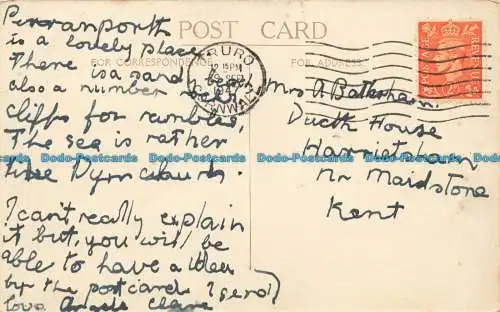 POST CARD
FOR CORRESPONDENCE
FOR ADDRESS
Perranporth
is a lovely place.
There is a sand
also a number
cliffs for rambles,
The sea is rather
like Dymchurch.
I can't really explain
it but, you will be
able to have a idea
by the postcards I send
love Clare
TRURO
12 15 PM
SEP
194
CORNWALL
POSTAGE
REVENUE
Mrs A
House
Harrietsham
Nr Maidstone
Kent
Dodo-Postcards Dodo-Postcards Dodo-Postcards Dodo-Postcards